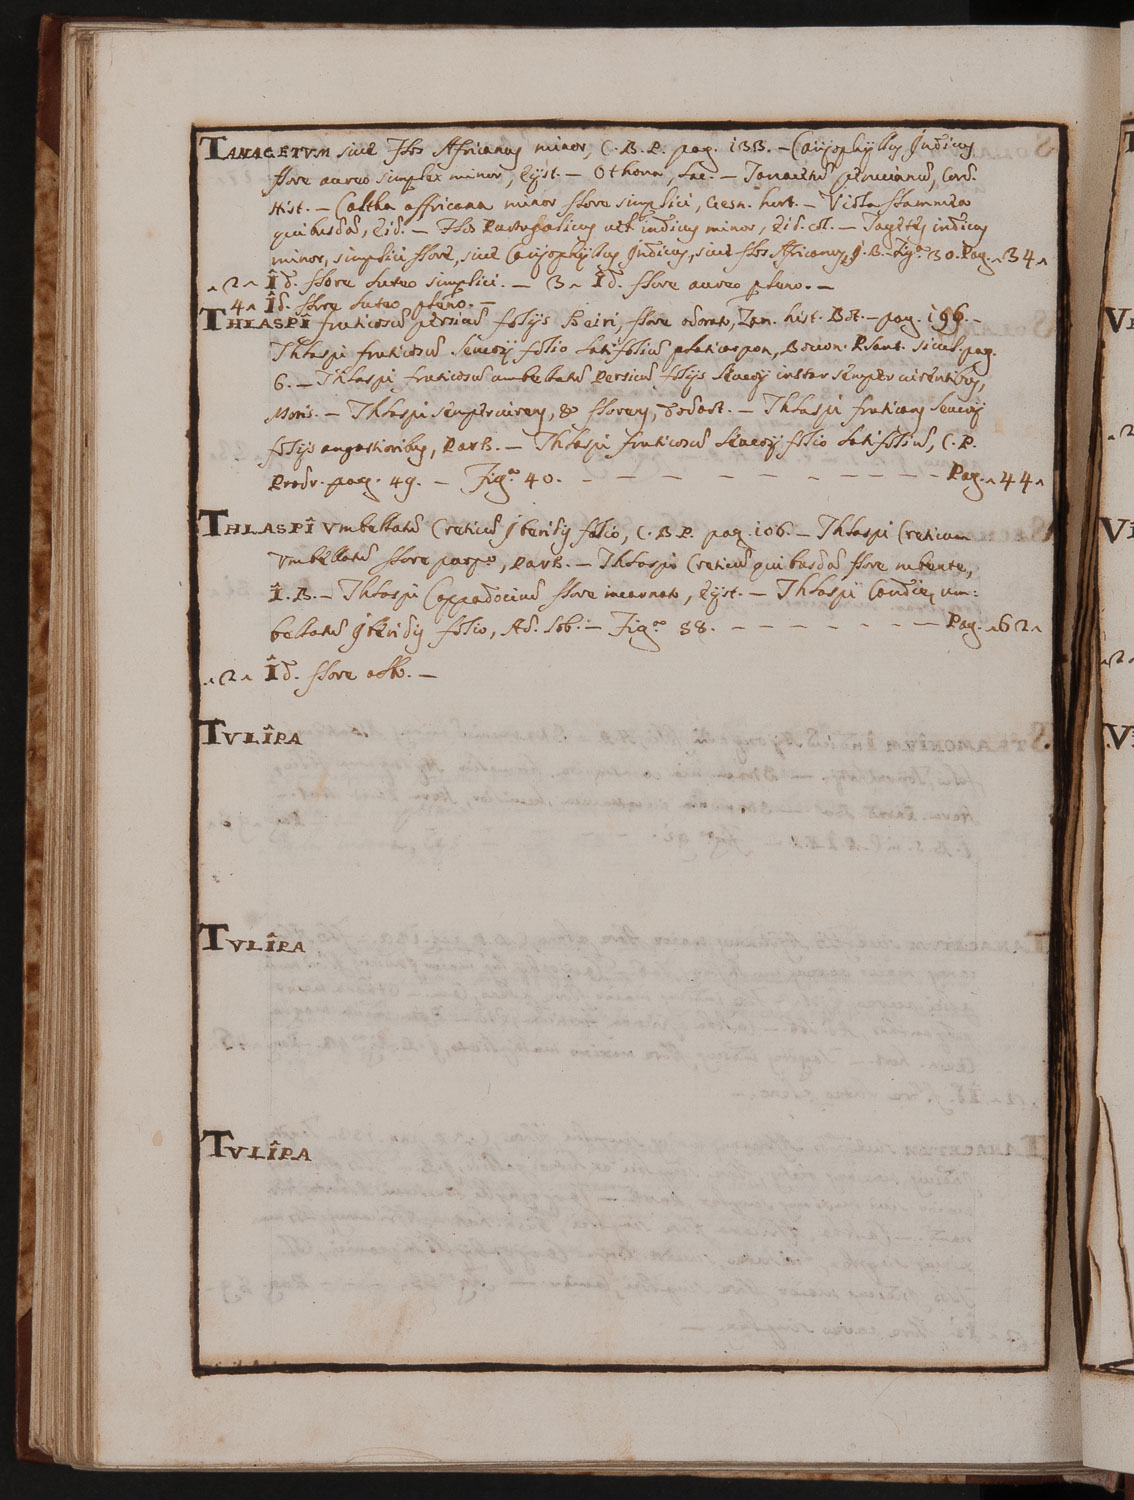 TANACETVM sive Flos Africanus minor, C.B.P. pag. 133. – Caryophyllus Indicus
flore aureo simplex minor, Eyst. – Othona, Lac. – Tanacetũ peruvianũ, Cord.
Hist. – Caltha affricana minor flore simplici, Gesn. hort. – Viola flammea
quibusdã, Eid. – Flos indicus minor, Eid. col. – Tagetes indicus
minor, simplici flore, sive Caryophyllus Indicus, sive flos Africanus, J.B. – Fig.ª 30. Pag. ^34^
^2^ Îd. flore luteo simplici. – 3^ Îd. flore aureo pleno. –
4^ Îd. flore luteo pleno. –
THLASPÎ fruticosũ persicũ folijs Keiri, flore odorato, Zan. hist. Bot. – pag. 196. –
Thlaspi fruticosũ leucoij folio latifoliũ platicarpon, Boccon. Plant. sicul. pag.
6. – Thlaspi fruticosũ umbellatũ Persicũ folijs leucoij instar sempervirentibus,
Moris. – Thlaspi sempervirens, & florens, Dodart. – Thlaspi fruticans leucoij
folijs angustioribus, Park. – Thlaspi fruticosũ leucoij folio latifoliũ, C.P.
Prodr. pag. 49. – Fig.ª 40. – – – – – – – – – – Pag. ^44^
THLASPÎ Vmbellatũ Creticũ Iberidis folio, C.B.P. pag. 106. – Thlaspi Creticum
Vmbellatũ flore purpº, Park. – Thlaspi Creticũ quibusdã flore rubente,
Î.B. – Thlaspi Cappadociũ flore incarnato, Eyst. – Thlaspi Candiæ, um:
bellatũ Iberidis folio, Ad. Lob. – Fig.ª 88. – – – – – – – Pag. ^62^
^2^ Îd. flore albo. –
TVLÎPA
TVLÎPA
TVLÎPA